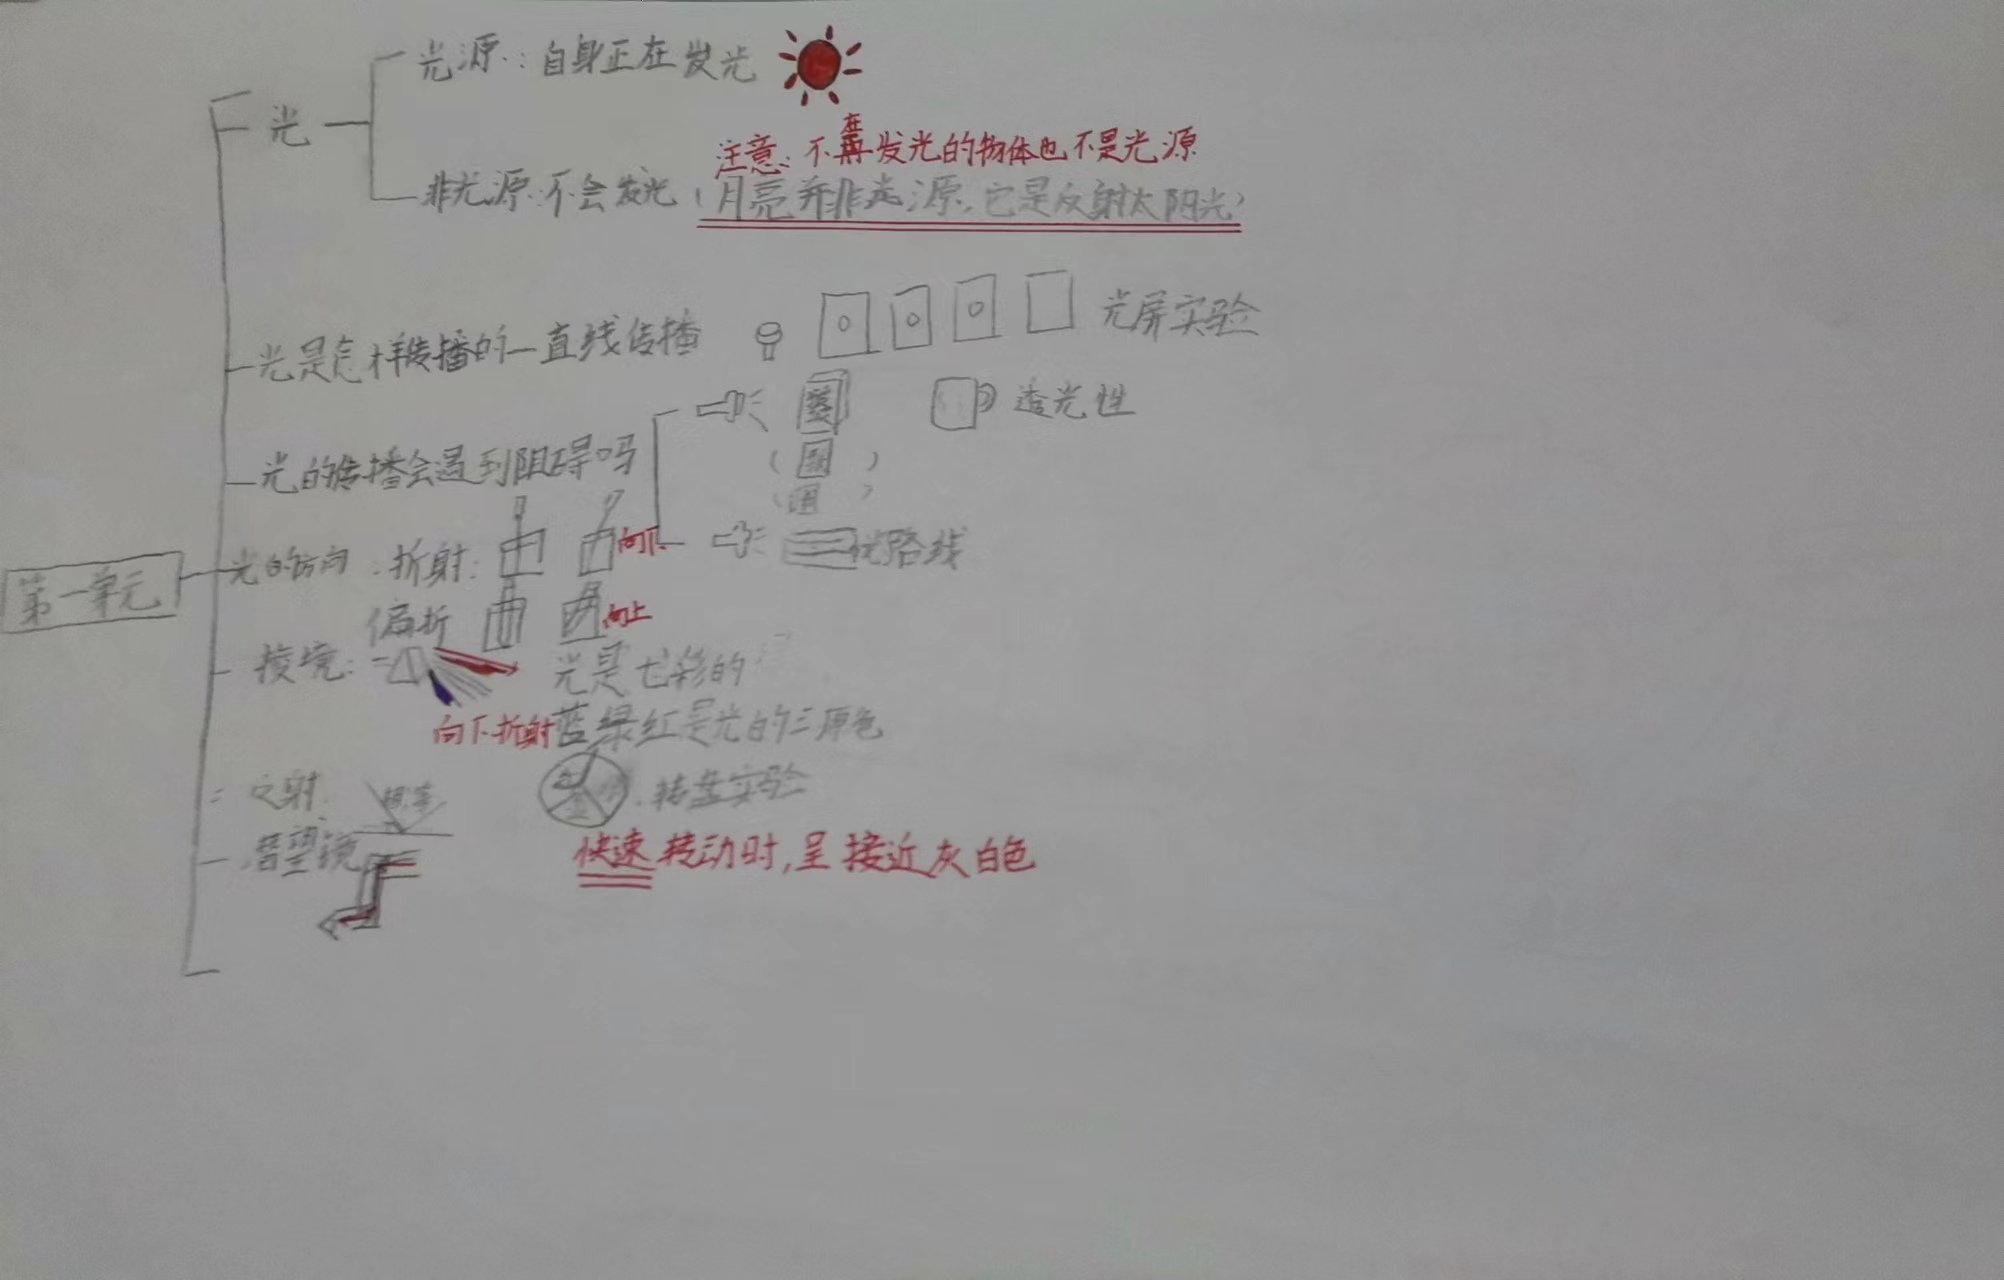 光源：自身正在发光
光
注意：不在发光的物体也不是光源
非光源：不会发光（月亮并非光源，它是反射太阳光）
光是怎样传播的—直线传播
光屏实验
透光性
光的传播会遇到阻碍吗
第一单元
光的方向：折射：
向下
光路线
偏折
向上
棱镜：
光是七彩的
向下折射
蓝绿红是光的三原色
反射：
转盘实验
潜望镜
快速转动时，呈接近灰白色